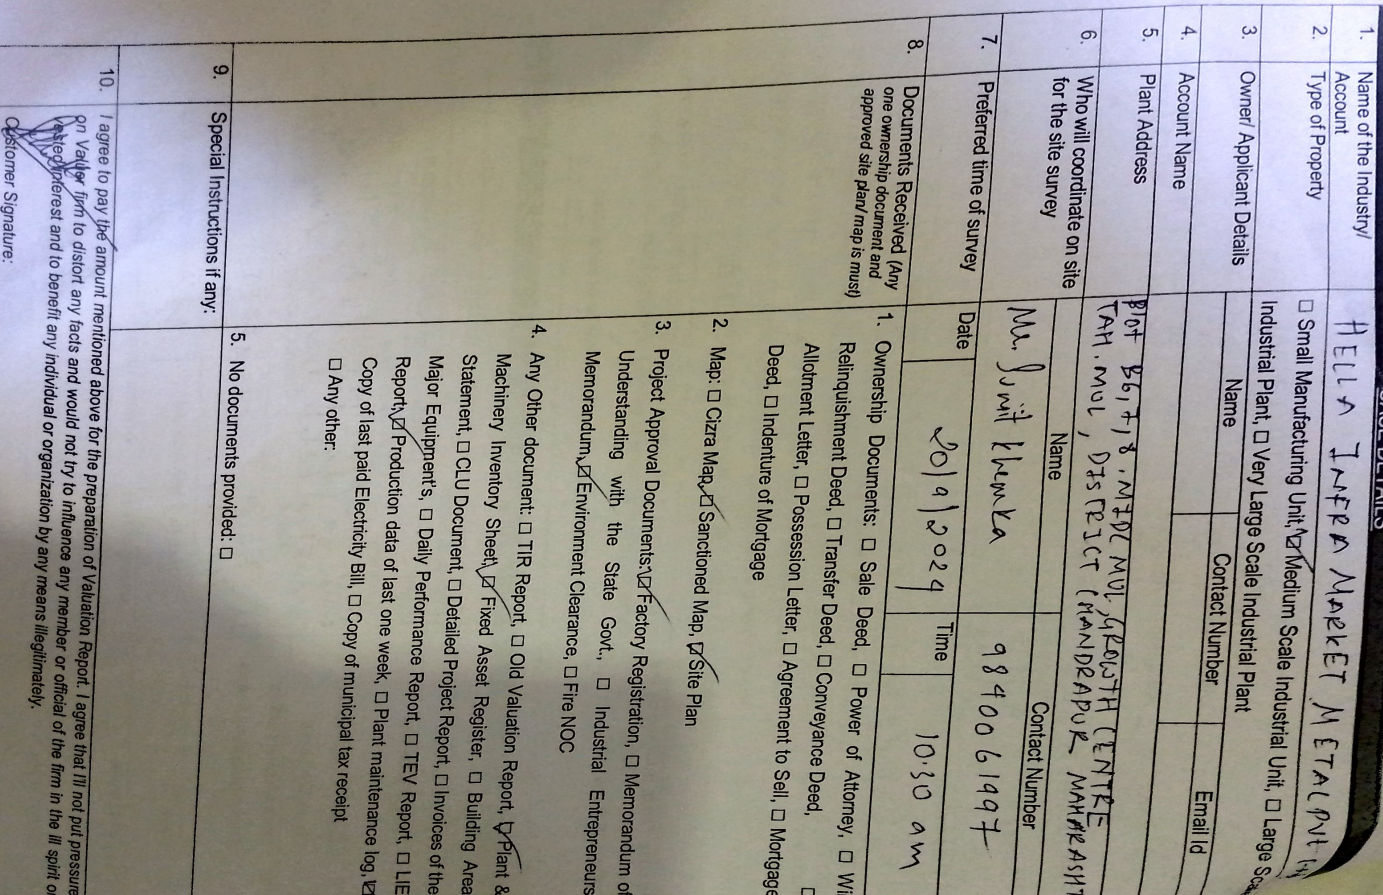 1. Name of the Industry/ Account HELLA INFRA MARKET METAL PVT
2. Type of Property ☐ Small Manufacturing Unit, ☑ Medium Scale Industrial Unit, ☐ Large Scale
Industrial Plant, ☐ Very Large Scale Industrial Plant
3. Owner/ Applicant Details Name Contact Number Email Id
4. Account Name
5. Plant Address Plot B6,7,8, MIDC MUL, GROWTH CENTRE
TAH. MUL, DISTRICT CHANDRAPUR MAHARASHT
6. Who will coordinate on site for the site survey Name Contact Number
Mr. Sumit Khemka 9840061997
7. Preferred time of survey Date 20/9/2024 Time 10:30 am
8. Documents Received (Any
one ownership document and
approved site plan/ map is must)
1. Ownership Documents: ☐ Sale Deed, ☐ Power of Attorney, ☐ Wi
Relinquishment Deed, ☐ Transfer Deed, ☐ Conveyance Deed, ☐
Allotment Letter, ☐ Possession Letter, ☐ Agreement to Sell, ☐ Mortgage
Deed, ☐ Indenture of Mortgage
2. Map: ☐ Cizra Map, ☑ Sanctioned Map, ☑ Site Plan
3. Project Approval Documents: ☑ Factory Registration, ☐ Memorandum of
Understanding with the State Govt., ☐ Industrial Entrepreneurs
Memorandum, ☑ Environment Clearance, ☐ Fire NOC
4. Any Other document: ☐ TIR Report, ☐ Old Valuation Report, ☑ Plant &
Machinery Inventory Sheet, ☑ Fixed Asset Register, ☐ Building Area
Statement, ☐ CLU Document, ☐ Detailed Project Report, ☐ Invoices of the
Major Equipment's, ☐ Daily Performance Report, ☐ TEV Report, ☐ LIE
Report, ☑ Production data of last one week, ☐ Plant maintenance log, ☑
Copy of last paid Electricity Bill, ☐ Copy of municipal tax receipt
☐ Any other:
5. No documents provided: ☐
9. Special Instructions if any:
10. I agree to pay the amount mentioned above for the preparation of Valuation Report. I agree that I'll not put pressure
on Valuer firm to distort any facts and would not try to influence any member or official of the firm in the ill spirit or
vested interest and to benefit any individual or organization by any means illegitimately.
Customer Signature: